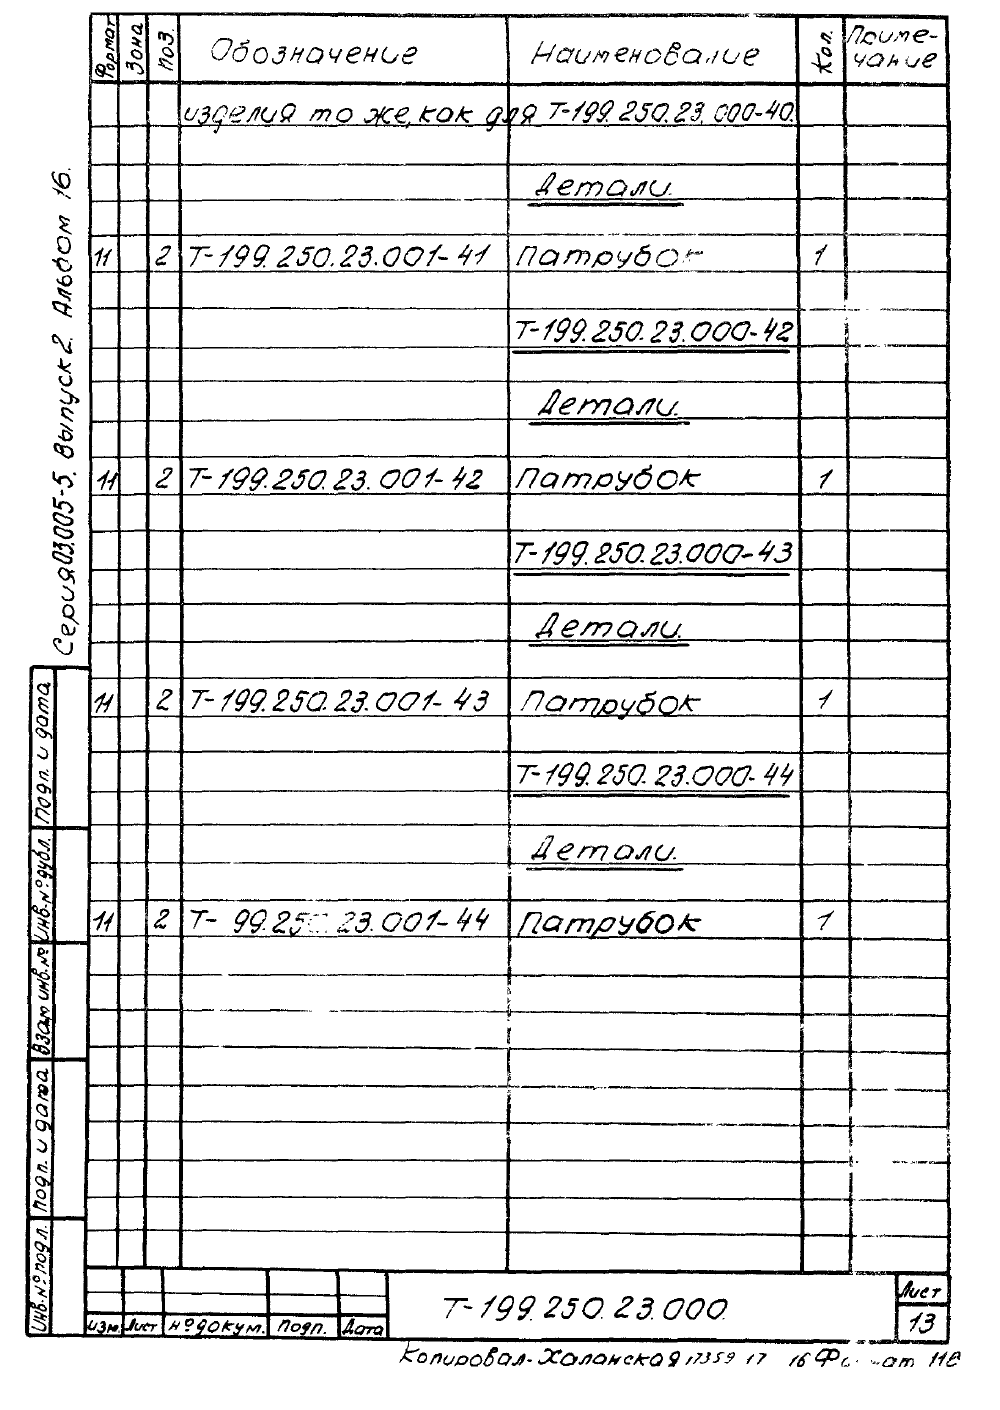 Формат Зона Поз. Обозначение Наименование Кол. Приме-
чание
изделия то же, как для Т-199.250.23.000-40.
Детали.
11 2 Т-199.250.23.001-41 Патрубок 1
Т-199.250.23.000-42
Детали.
11 2 Т-199.250.23.001-42 Патрубок 1
Т-199.250.23.000-43
Детали.
11 2 Т-199.250.23.001-43 Патрубок 1
Т-199.250.23.000-44
Детали.
11 2 Т- 99.250.23.001-44 Патрубок 1
Серия 03.005-5. Выпуск 2. Альбом 16.
Подп. и дата
Инв. № дубл.
Взам инв. №
Подп. и дата
Инв. № подл.
Изм Лист № докум. Подп. Дата
Т-199.250.23.000.
Лист
13
Копировал - Халанская 17359 17 16 Формат 11в